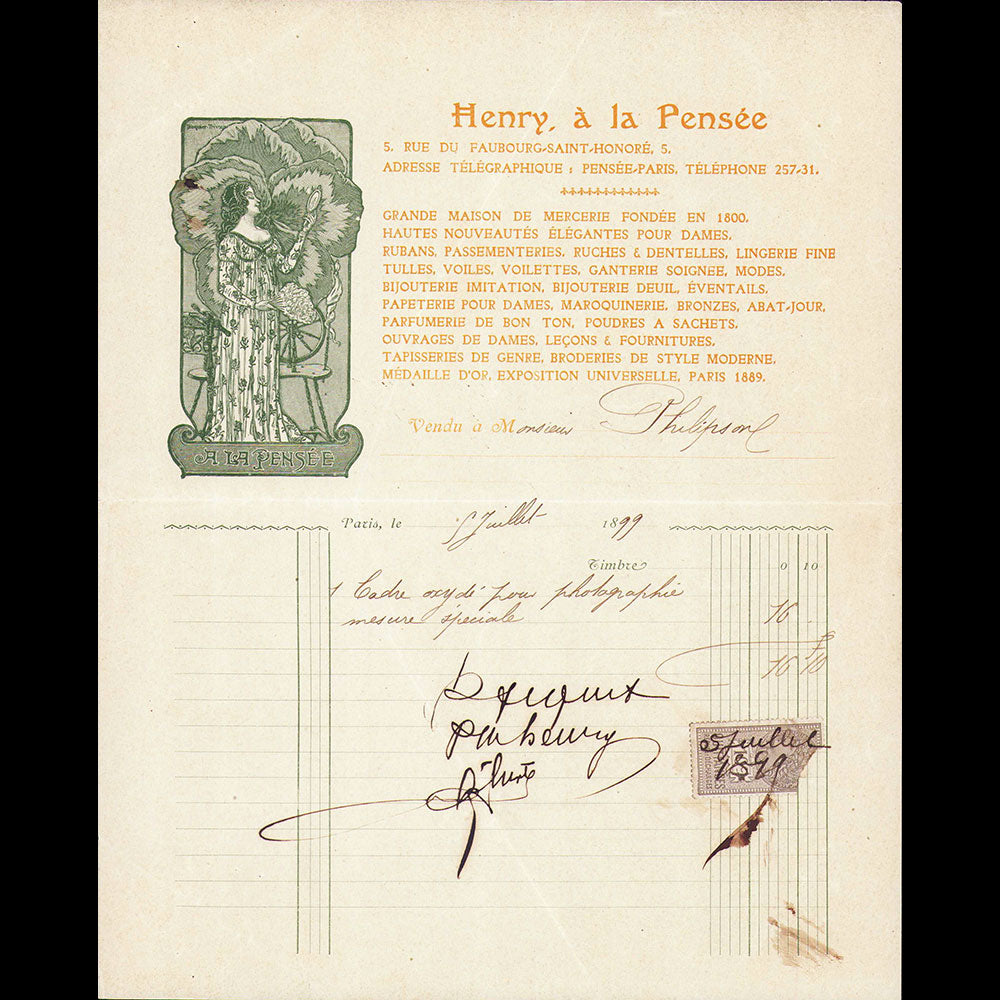 Henry, à la Pensée
5, RUE DU FAUBOURG-SAINT-HONORÉ, 5,
ADRESSE TÉLÉGRAPHIQUE : PENSÉE-PARIS, TÉLÉPHONE 257-31.
GRANDE MAISON DE MERCERIE FONDÉE EN 1800,
HAUTES NOUVEAUTÉS ÉLÉGANTES POUR DAMES,
RUBANS, PASSEMENTERIES, RUCHES & DENTELLES, LINGERIE FINE
TULLES, VOILES, VOILETTES, GANTERIE SOIGNEE, MODES,
BIJOUTERIE IMITATION, BIJOUTERIE DEUIL, ÉVENTAILS,
PAPETERIE POUR DAMES, MAROQUINERIE, BRONZES, ABAT-JOUR,
PARFUMERIE DE BON TON, POUDRES A SACHETS,
OUVRAGES DE DAMES, LEÇONS & FOURNITURES,
TAPISSERIES DE GENRE, BRODERIES DE STYLE MODERNE,
MÉDAILLE D'OR, EXPOSITION UNIVERSELLE, PARIS 1889.
Vendu à Monsieur Philipson
A LA PENSÉE
Paris, le 5 Juillet 1899
Timbre 0 10
1 Cadre oxydé pour photographie
mesure spéciale 16 .
16 10
Pr Henry
5 Juillet
1899